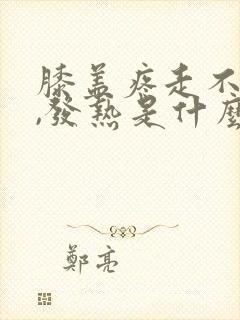 膝盖疼走不
,發熱是什麼
鄭亮